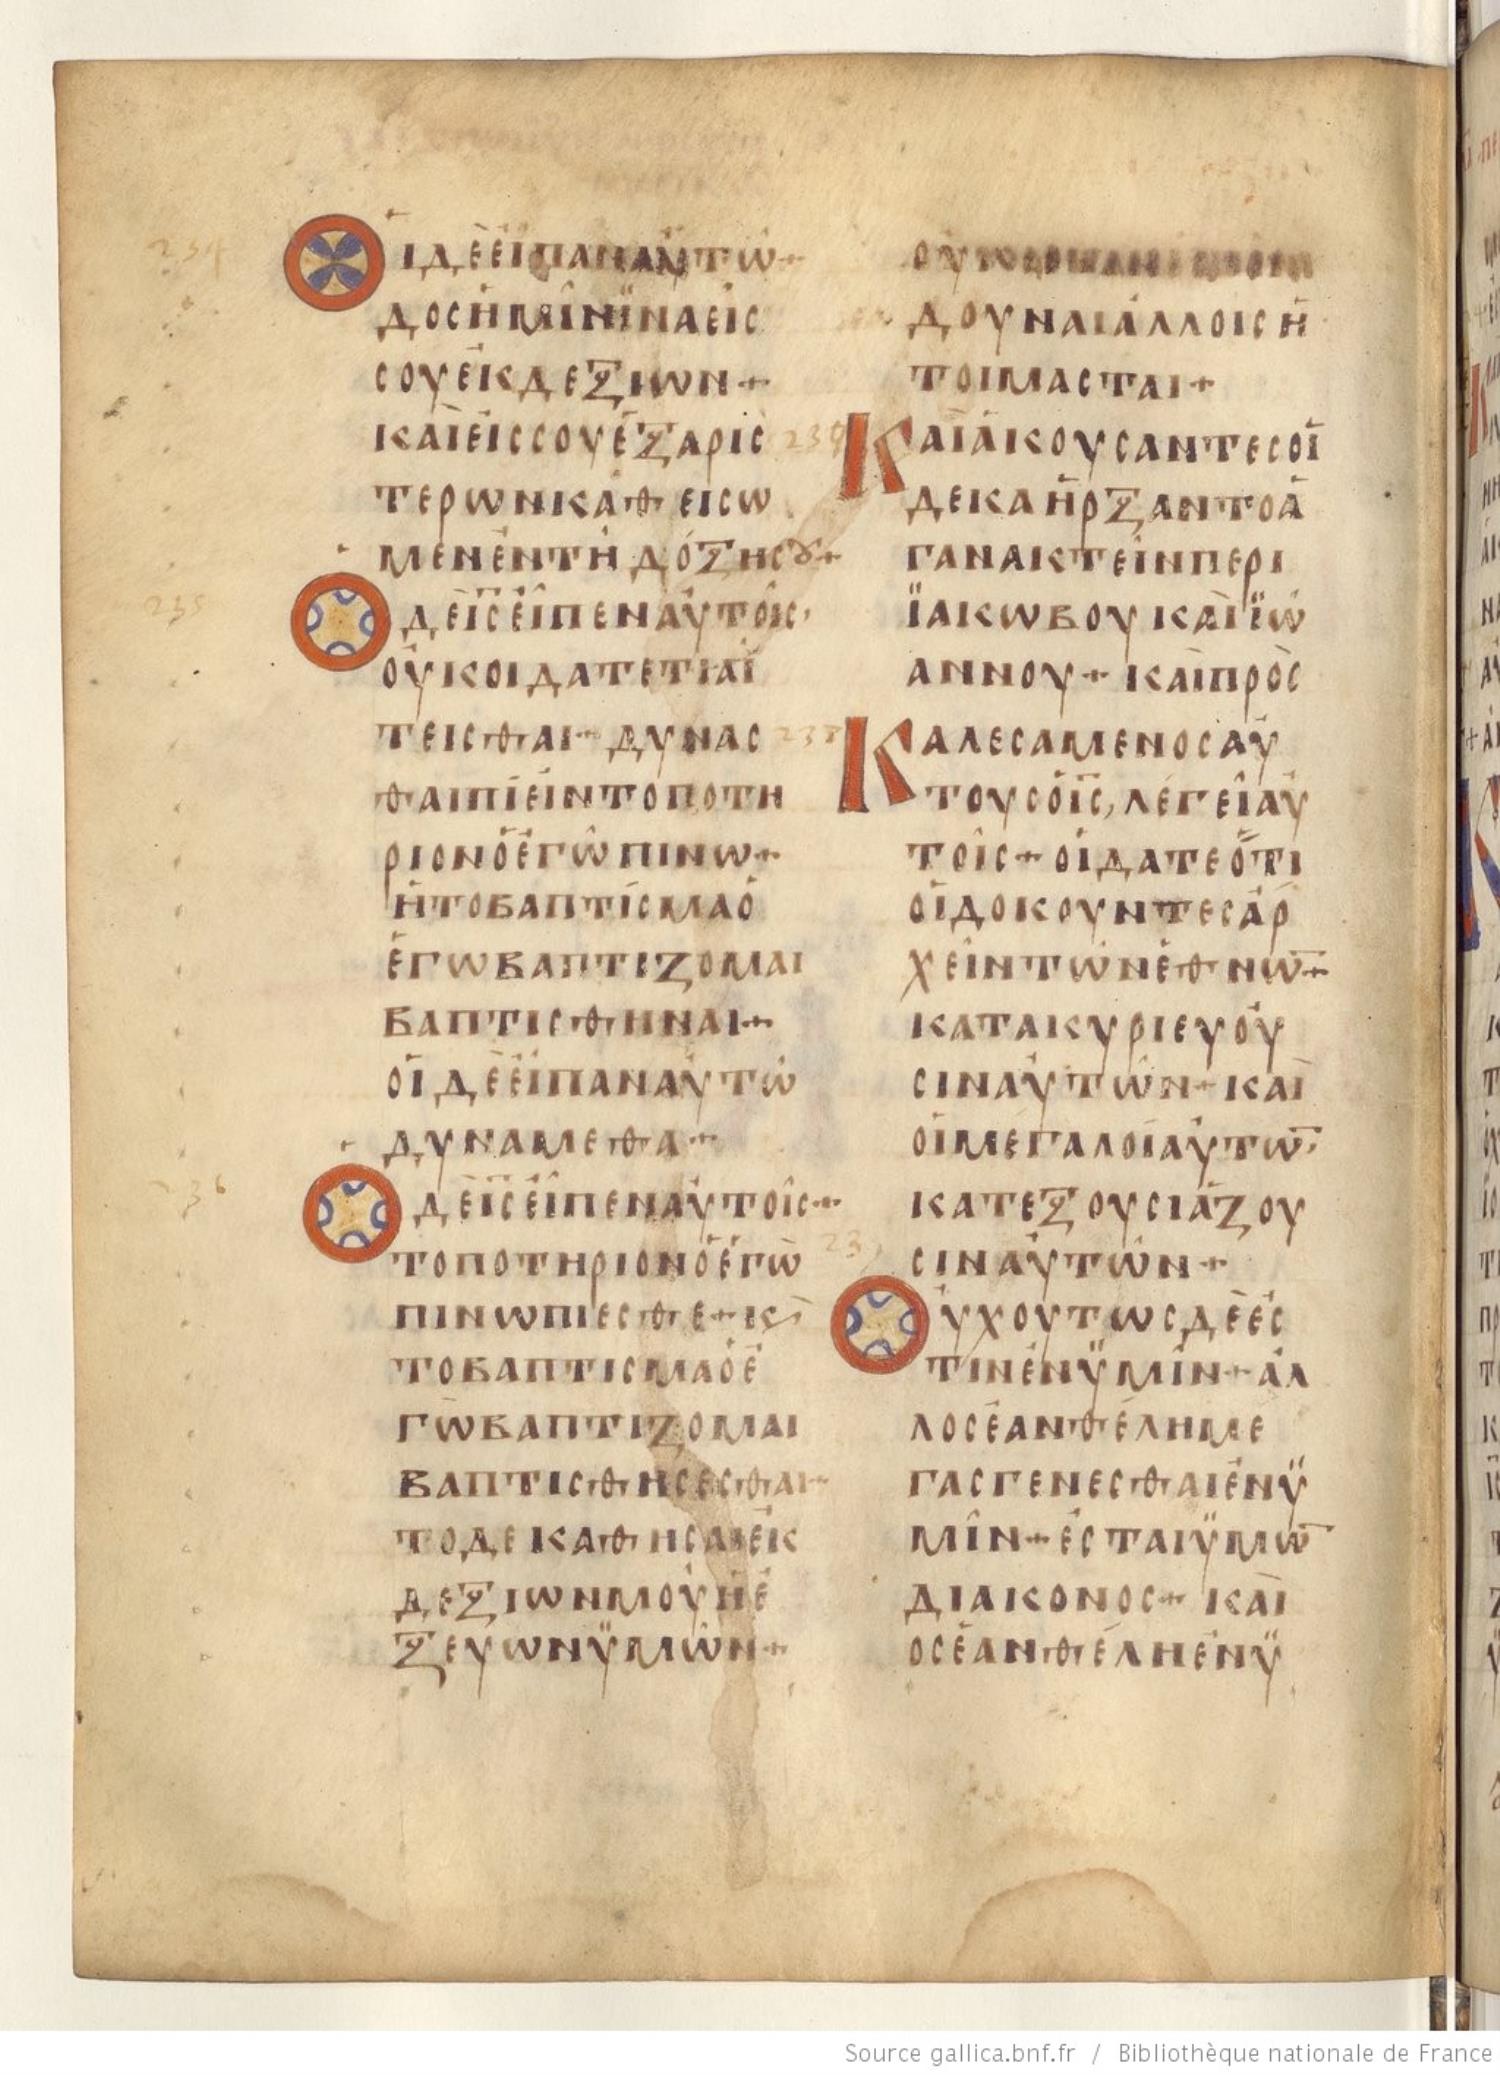 ΟΙ ΔΕ ΕΙΠΑΝ ΑΥΤΩ+
ΔΟΣ ΗΜΙΝ ΙΝΑ ΕΙΣ
ΣΟΥ ΕΚ ΔΕΞΙΩΝ+
ΚΑΙ ΕΙΣ ΣΟΥ ΕΞ ΑΡΙΣ
ΤΕΡΩΝ ΚΑΘΕΙΣΩ
ΜΕΝ ΕΝ ΤΗ ΔΟΞΗ ΣΟΥ+
Ο ΔΕ ΙΣ ΕΙΠΕΝ ΑΥΤΟΙΣ,
ΟΥΚ ΟΙΔΑΤΕ ΤΙ ΑΙ
ΤΕΙΣΘΑΙ+ ΔΥΝΑΣ
ΘΑΙ ΠΙΕΙΝ ΤΟ ΠΟΤΗ
ΡΙΟΝ Ο ΕΓΩ ΠΙΝΩ+
Η ΤΟ ΒΑΠΤΙΣΜΑ Ο
ΕΓΩ ΒΑΠΤΙΖΟΜΑΙ
ΒΑΠΤΙΣΘΗΝΑΙ+
ΟΙ ΔΕ ΕΙΠΑΝ ΑΥΤΩ
ΔΥΝΑΜΕΘΑ+
Ο ΔΕ ΙΣ ΕΙΠΕΝ ΑΥΤΟΙΣ+
ΤΟ ΠΟΤΗΡΙΟΝ Ο ΕΓΩ
ΠΙΝΩ ΠΙΕΣΘΕ+ Κ
ΤΟ ΒΑΠΤΙΣΜΑ Ο Ε
ΓΩ ΒΑΠΤΙΖΟΜΑΙ
ΒΑΠΤΙΣΘΗΣΕΣΘΑΙ+
ΤΟ ΔΕ ΚΑΘΗΣΑΙ ΕΚ
ΔΕΞΙΩΝ ΜΟΥ Η Ε
ΞΕΥΩΝΥΜΩΝ+
ΔΟΥΝΑΙ ΑΛΛΟΙΣ Η
ΤΟΙΜΑΣΤΑΙ+
ΚΑΙ ΑΚΟΥΣΑΝΤΕΣ ΟΙ
ΔΕΚΑ ΗΡΞΑΝΤΟ Α
ΓΑΝΑΚΤΕΙΝ ΠΕΡΙ
ΙΑΚΩΒΟΥ ΚΑΙ ΙΩ
ΑΝΝΟΥ+ ΚΑΙ ΠΡΟΣ
ΚΑΛΕΣΑΜΕΝΟΣ ΑΥ
ΤΟΥΣ Ο ΙΣ, ΛΕΓΕΙ ΑΥ
ΤΟΙΣ+ ΟΙΔΑΤΕ ΟΤΙ
ΟΙ ΔΟΚΟΥΝΤΕΣ ΑΡ
ΧΕΙΝ ΤΩΝ ΕΘΝΩ̅+
ΚΑΤΑΚΥΡΙΕΥΟΥ
ΣΙΝ ΑΥΤΩΝ+ ΚΑΙ
ΟΙ ΜΕΓΑΛΟΙ ΑΥΤΩ̅,
ΚΑΤΕΞΟΥΣΙΑΖΟΥ
ΣΙΝ ΑΥΤΩΝ+
ΟΥΧ ΟΥΤΩΣ ΔΕ ΕΣ
ΤΙΝ ΕΝ ΥΜΙΝ+ ΑΛ
ΛΟΣ ΕΑΝ ΘΕΛΗ ΜΕ
ΓΑΣ ΓΕΝΕΣΘΑΙ ΕΝ Υ
ΜΙΝ+ ΕΣΤΑΙ ΥΜΩ̅
ΔΙΑΚΟΝΟΣ+ ΚΑΙ
ΟΣ ΕΑΝ ΘΕΛΗ ΕΝ Υ
234
235
236
Source gallica.bnf.fr / Bibliothèque nationale de France